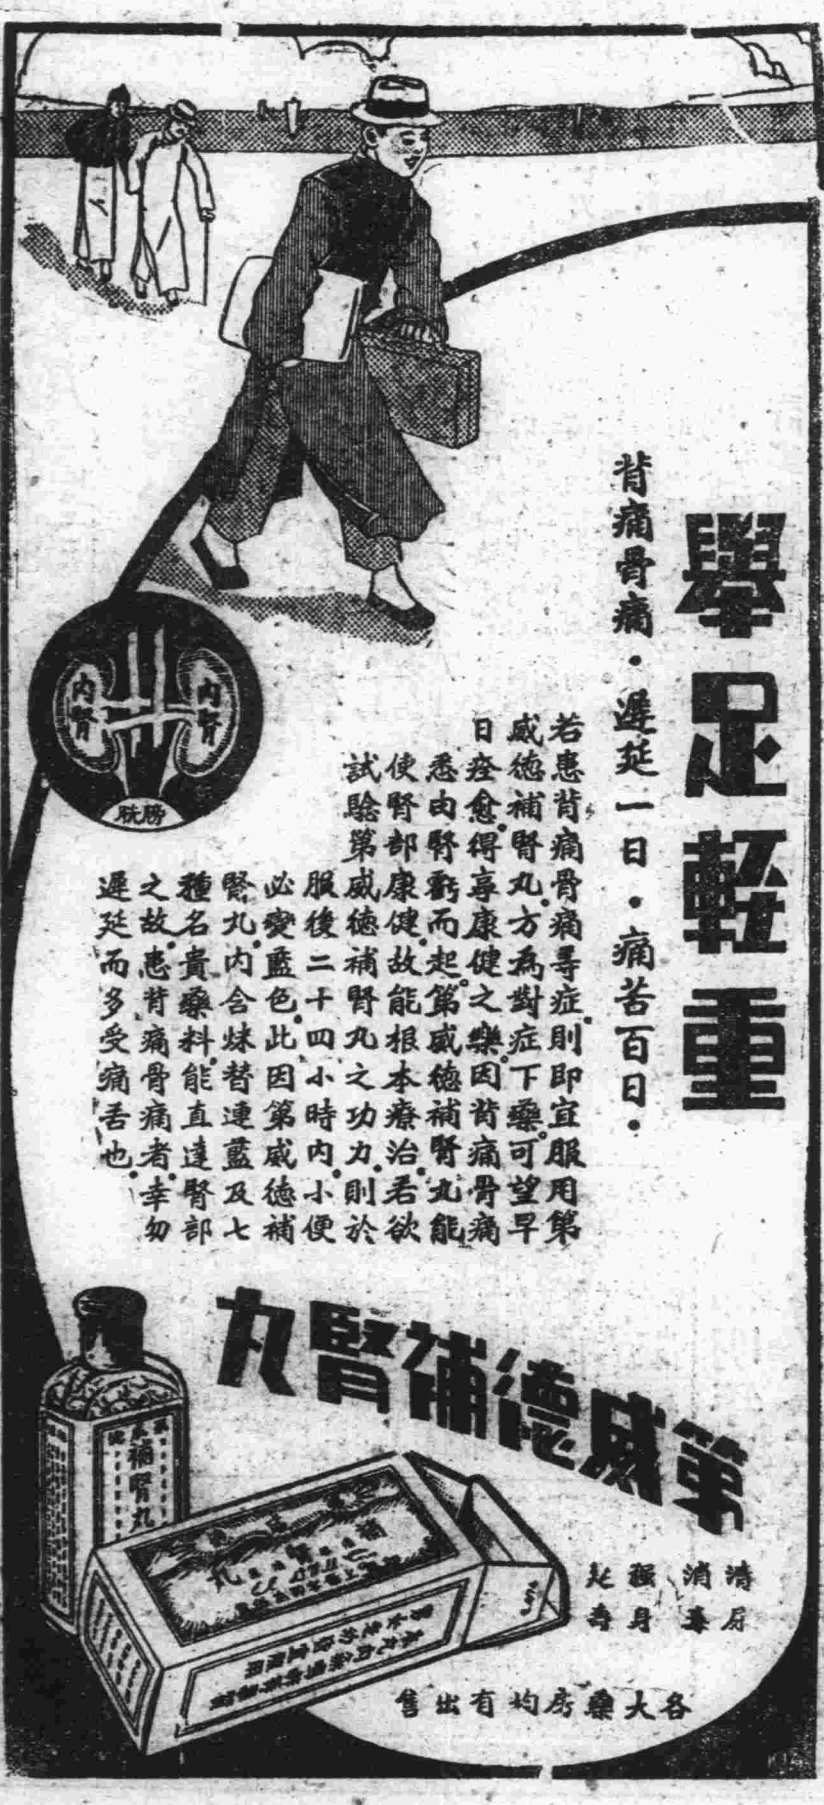 舉足輕重
背痛骨痛．遲延一日．痛苦百日．
若患背痛骨痛等症．則即宜服用第
威德補腎丸．方為對症下藥．可望早
日痊愈．得享康健之樂．因背痛骨痛
悉由腎虧而起．第威德補腎丸能
使腎部康健．故能根本療治．若欲
試驗第威德補腎丸之功力．則於
服後二十四小時內．小便
必變藍色．此因第威德補
腎丸．內含妹替連藍及七
種名貴藥料．能直達腎部
之故．患背痛骨痛者．幸勿
遲延而多受痛苦也．
內腎
內腎
膀胱
第威德補腎丸
補腎丸
清尿
消毒
强身
各大藥房均有出售